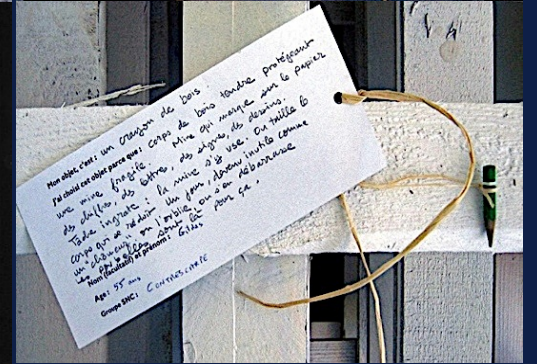 Mon objet, c'est : un crayon de bois
J'ai choisi cet objet parce que : corps de bois tendre protégeant
une mine fragile. Mine qui marque sur le papier
ds chiffres, ds lettres, ds signes, ds dessins.
Tâche ingrate : la mine s'y use. On taille le
corps qui se réduit. Un jour, devenu inutile comme
un "chômeur" on l'oublie ou s'en débarrasse
les poubelles sont là pour ça.
Nom (facultatif) et prénom : Gildas
Age : 55 ans
Groupe SNC : CONTRESCARPE